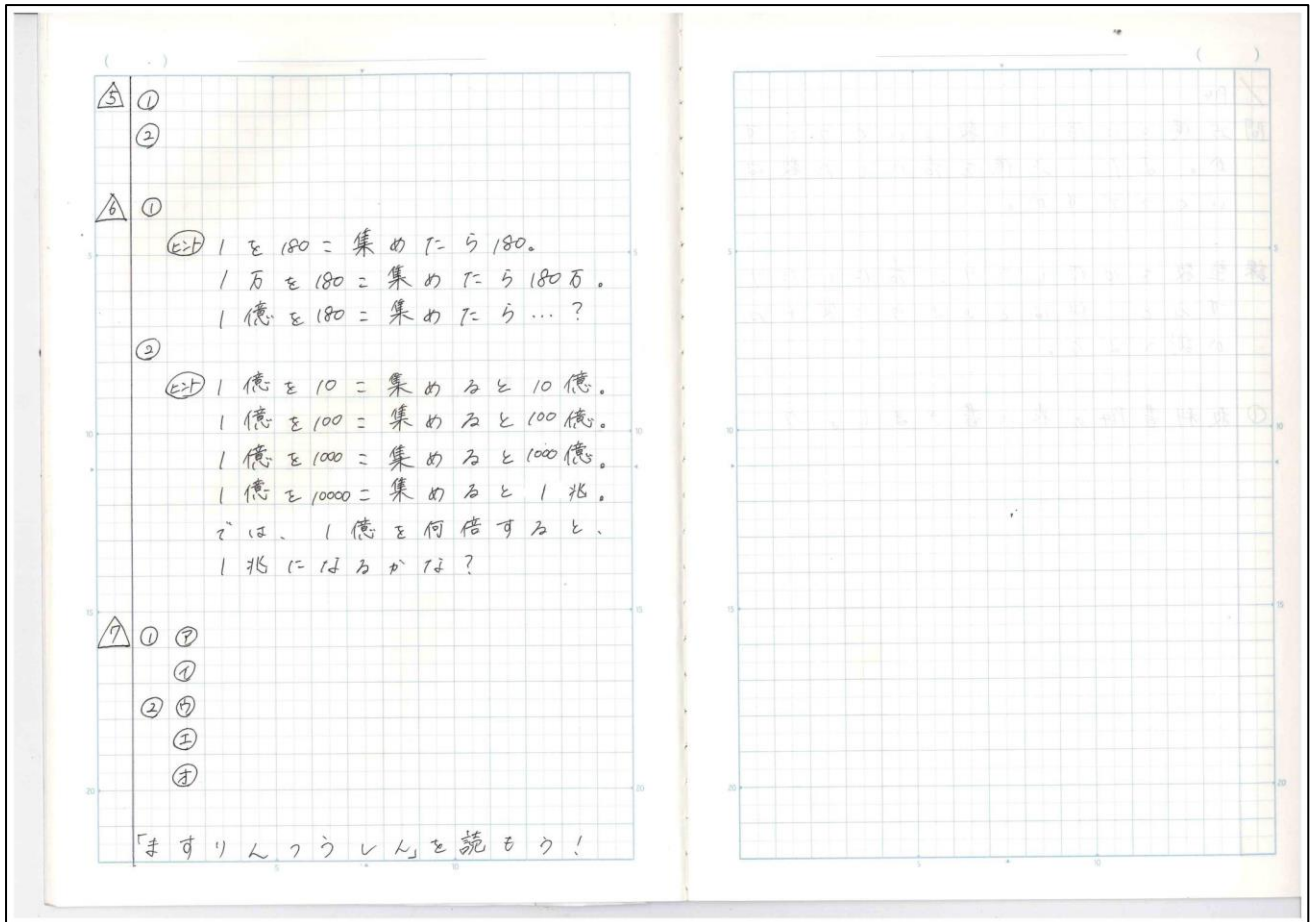 ( . )
5 ①
②
6 ①
ヒント 1を180こ集めたら180。
1万を180こ集めたら180万。
1億を180こ集めたら…?
②
ヒント 1億を10こ集めると10億。
1億を100こ集めると100億。
1億を1000こ集めると1000億。
1億を10000こ集めると1兆。
では、1億を何倍すると、
1兆になるかな?
7 ① ㋐
㋑
② ㋒
㋓
㋔
「ますりんつうしん」を読もう!
( )
5
10
15
20